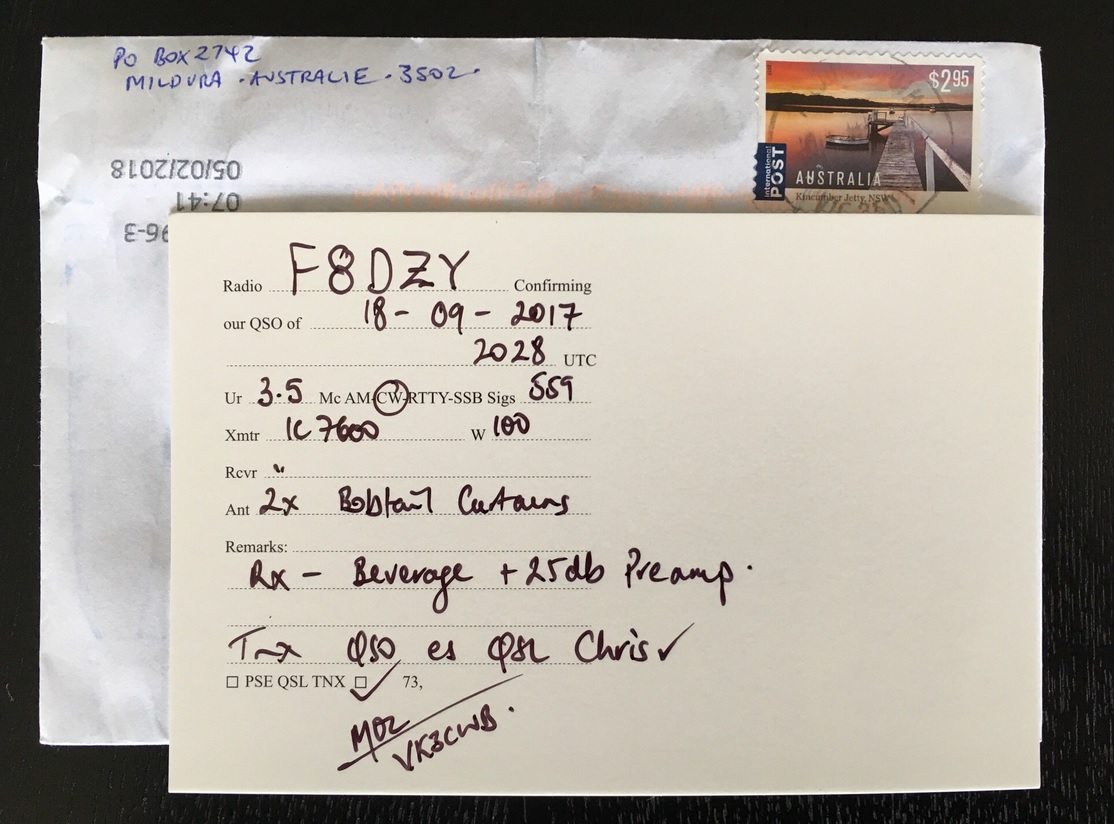 PO BOX 2742
MILDURA · AUSTRALIE · 3502·
$2.95
International POST
AUSTRALIA
Kincumber Jetty, NSW
05/02/2018
07:41
96-3
Radio F8DZY Confirming
our QSO of 18 - 09 - 2017
2028 UTC
Ur 3.5 Mc AM-CW-RTTY-SSB Sigs 559
Xmtr IC 7600 W 100
Rcvr "
Ant 2x Bobtail Curtains
Remarks:
Rx - Beverage + 25db Preamp.
Tnx QSO es QSL Chris ✓
☐ PSE QSL TNX ☐ ✓ 73,
VK3CWB.